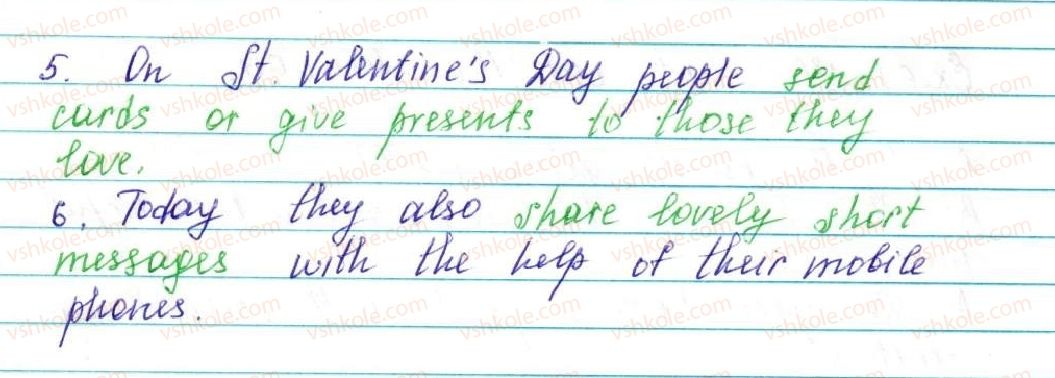 5. On St. Valentine's Day people send
cards or give presents to those they
love.
6. Today they also share lovely short
messages with the help of their mobile
phones.